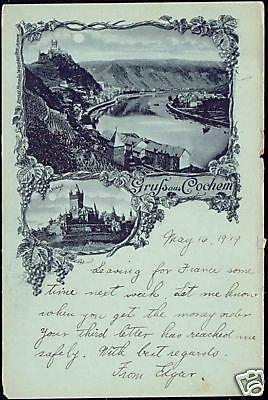 Gruß aus Cochem
May 16, 1919
Leaving for France some
time next week. Let me know
when you get the money order
Your third letter has reached me
safely. With best regards.
From Edgar